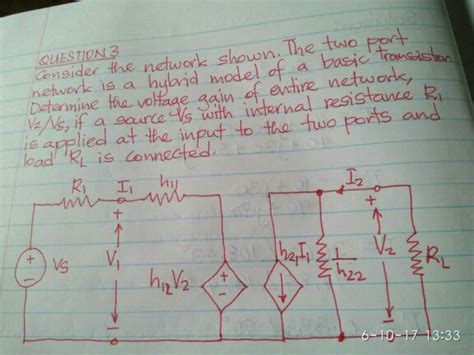 QUESTION 3
Consider the network shown. The two port
network is a hybrid model of a basic transistor.
Determine the voltage gain of entire network,
V2/Vs, if a source Vs with internal resistance R1
is applied at the input to the two ports and
load RL is connected.
R1 I1 h11 I2
+ + 
Vs V1 h12V2 h21I1 1/h22 V2 RL
6-10-17 13:33